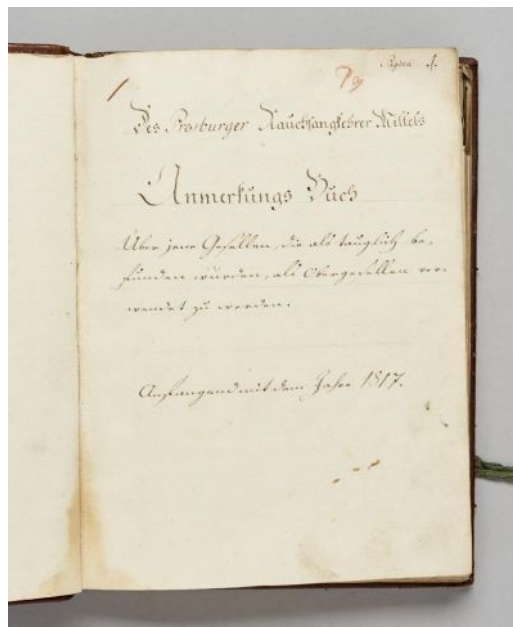 Pagina 1.
Des Presburger Rauchfangkehrer Mittels
Anmerkungs Buch
Über jene Gesellen, die als tauglich be,
funden wurden, als Obergesellen ver-
wendet zu werden.
Anfangend mit dem Jahre 1817.